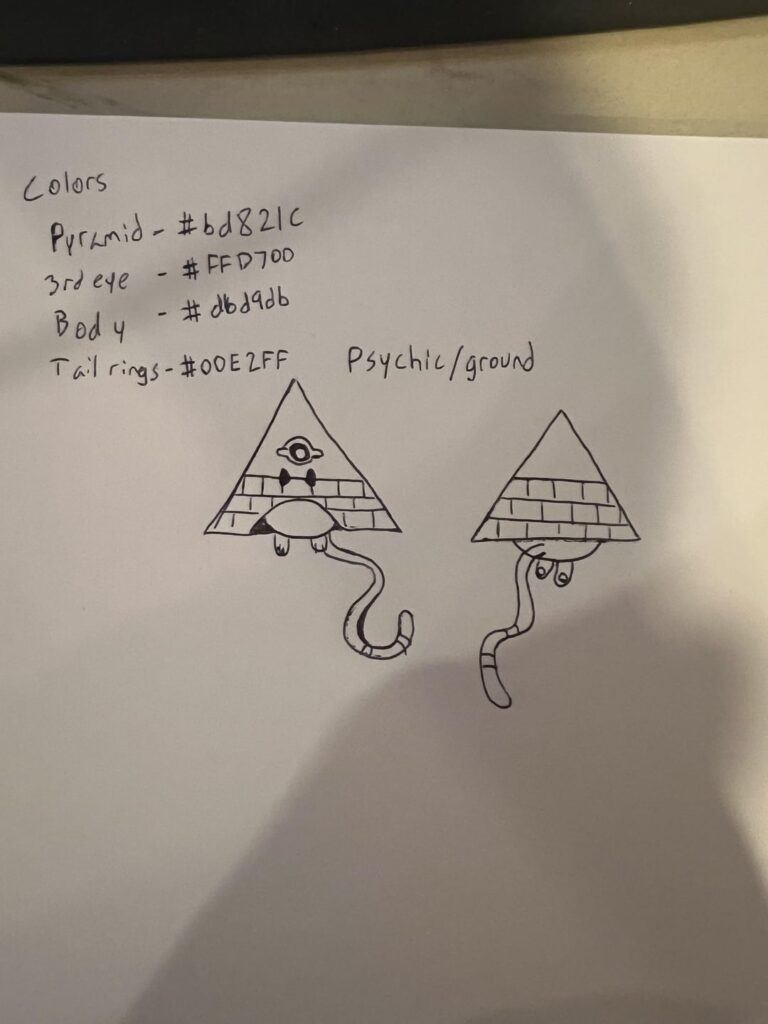 Colors
Pyramid - #bd821c
3rd eye - #FFD700
Body - #dbd9db
Tail rings - #00E2FF
Psychic/ground